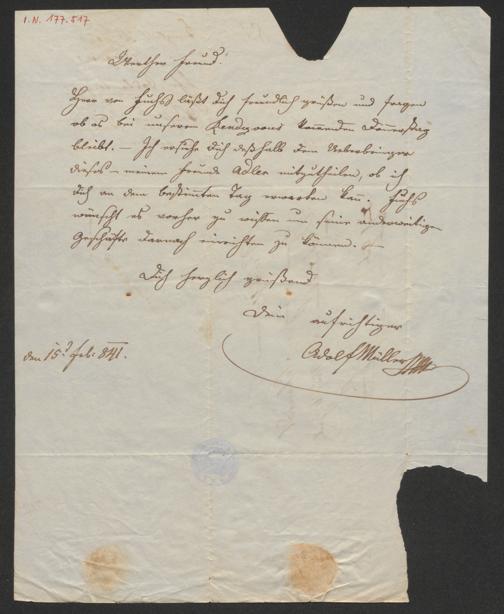 I.N. 177.517
Werther Freund!
Herr von Fuchs läßt Dich freundlich grüßen und fragen
ob es bei unserem Rendezvous kommenden Donnerstag
bleibt. – Ich ersuche Dich deßhalb dem Ueberbringer
dieses – meinem Freunde Adler mitzutheilen, ob ich
Dich an dem bestimmten Tag erwarten kan. Fuchs
wünscht es vorher zu wissen um seine anderweitigen
Geschäfte darnach einrichten zu können. –
Dich herzlich grüßend
Dein aufrichtiger
Adolf Müller
den 15t Feb: 841.